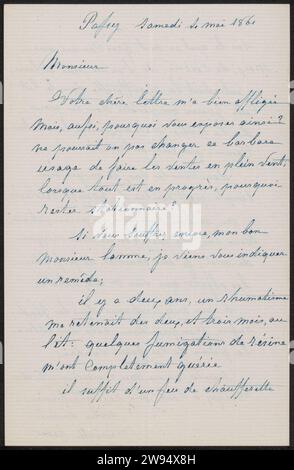 Passy samedi 4 mai 1861
Monsieur
Votre chère lettre m'a bien affligée
Mais, aussi, pourquoi vous exposer ainsi?
ne pourrait on pas changer ce barbare
usage de faire les ventes en plein vent,
lorsque tout est en progrès, pourquoi
rester stationnaire?
Si vous souffrez encore, mon bon
Monsieur Lamme, je viens vous indiquer
un remède;
il y a deux ans, un rhumatisme
me retenait des deux, et trois mois, au
lit: quelques fumigations de résine
m'ont complètement guérie
il suffit d'un feu de chaufferette
alamy
Image ID: 2W94X8H
www.alamy.com